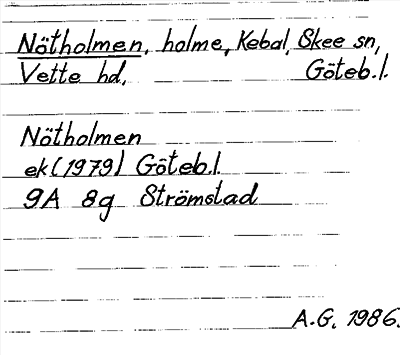 Nötholmen, holme, Kebal, Skee sn,
Vette hd, Göteb.l.
Nötholmen
ek (1979) Göteb.l.
9A 8g Strömstad
A.G. 1986.